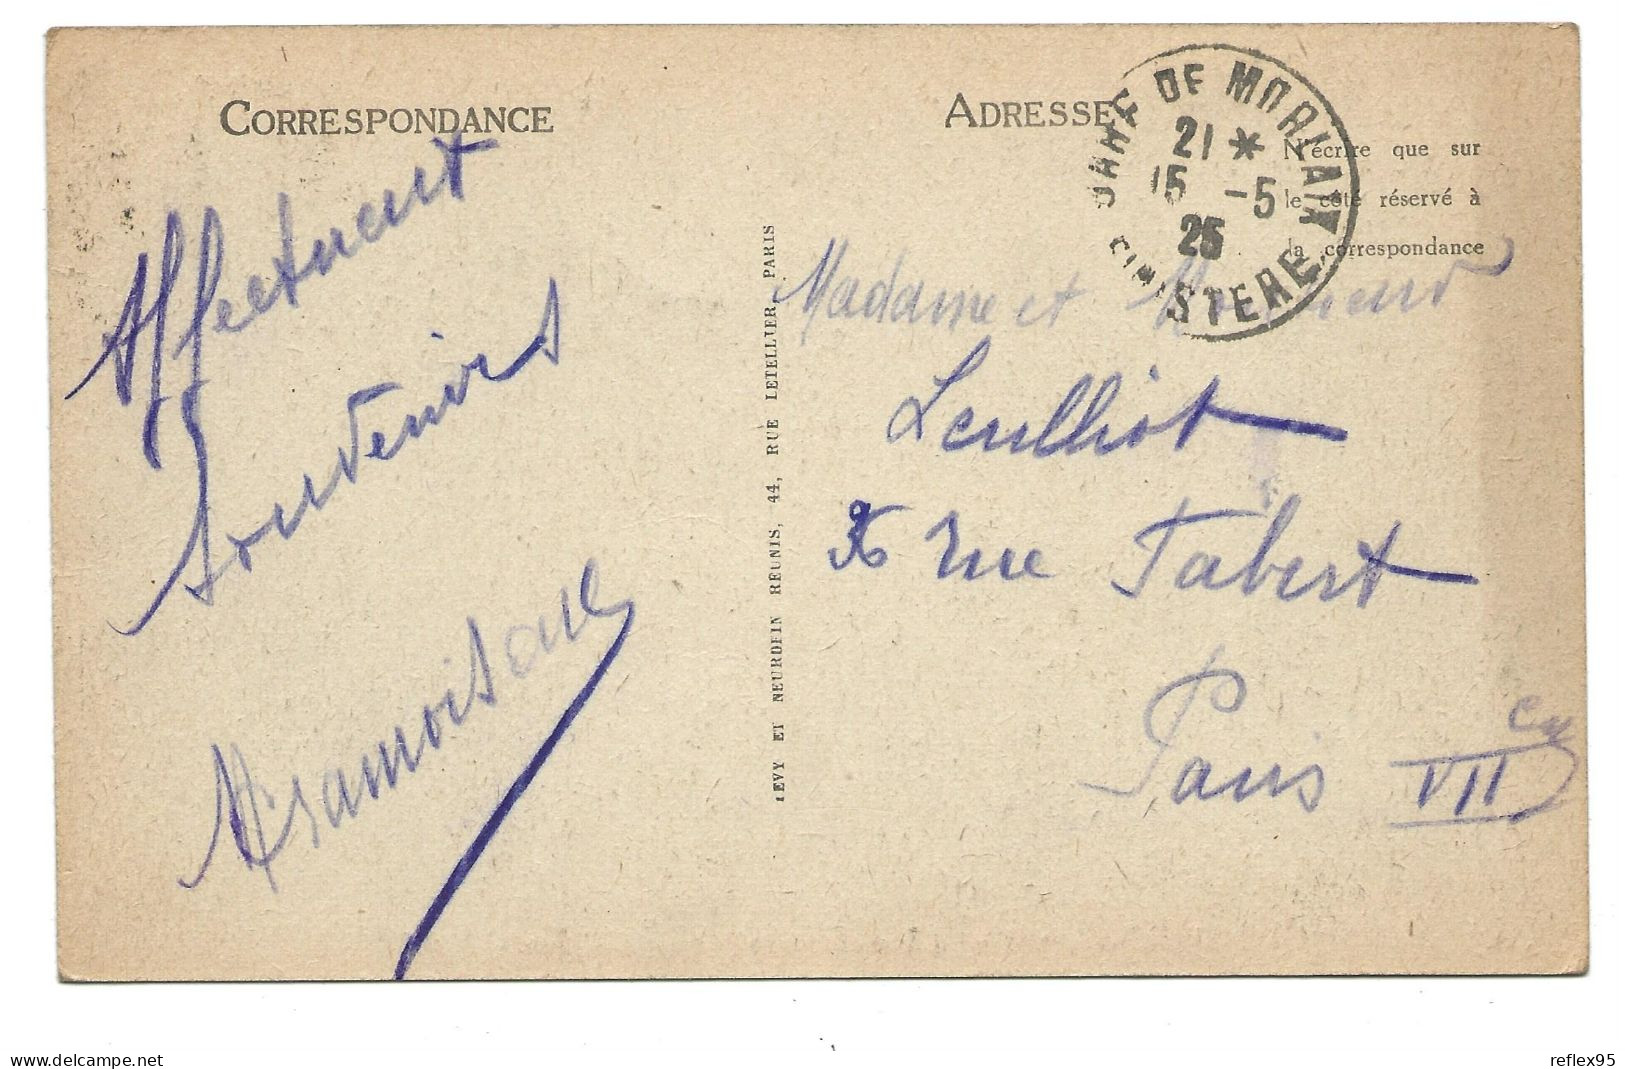 CORRESPONDANCE
Affectueux
Souvenirs
LEVY ET NEURDEIN REUNIS, 44, RUE LETELLIER, PARIS
ADRESSE
N'écrire que sur
le côté réservé à
la correspondance
GARE DE MORLAIX
21 *
15 -5
25
FINISTERE
Madame et Monsieur
Leulliot
rue Fabert
Paris VII
www.delcampe.net
reflex95